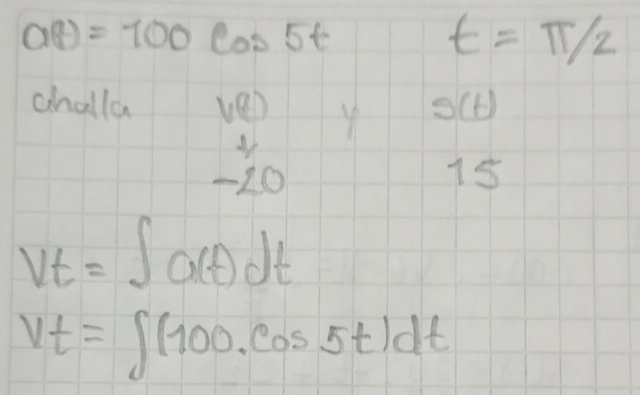 a(t) = 100 cos 5t t = π/2
ahalla v(t) y s(t)
-20 15
Vt = ∫ a(t) dt
Vt = ∫(100.cos 5t)dt